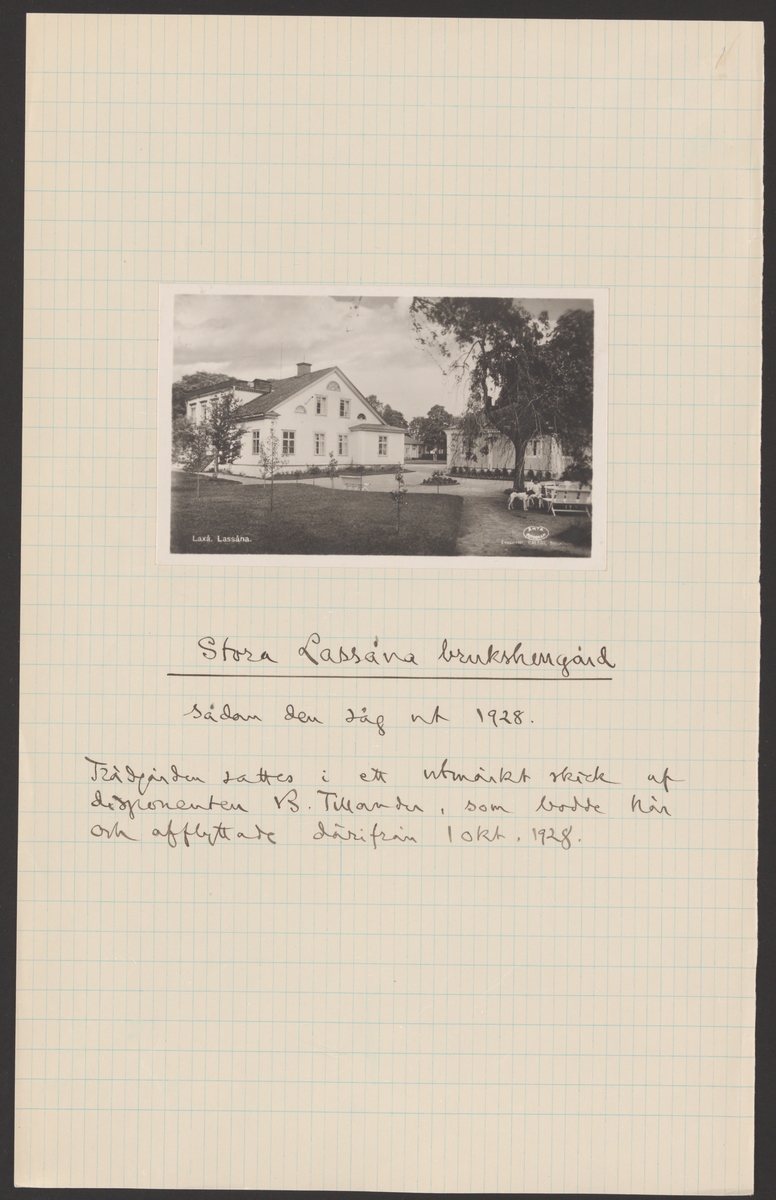 Laxå. Lassåna.
Stora Lassåna bruksherrgård
sådan den såg ut 1928.
Trädgården sattes i ett utmärkt skick af
disponenten B. Tillander, som bodde här
och afflyttade därifrån 1 okt. 1928.